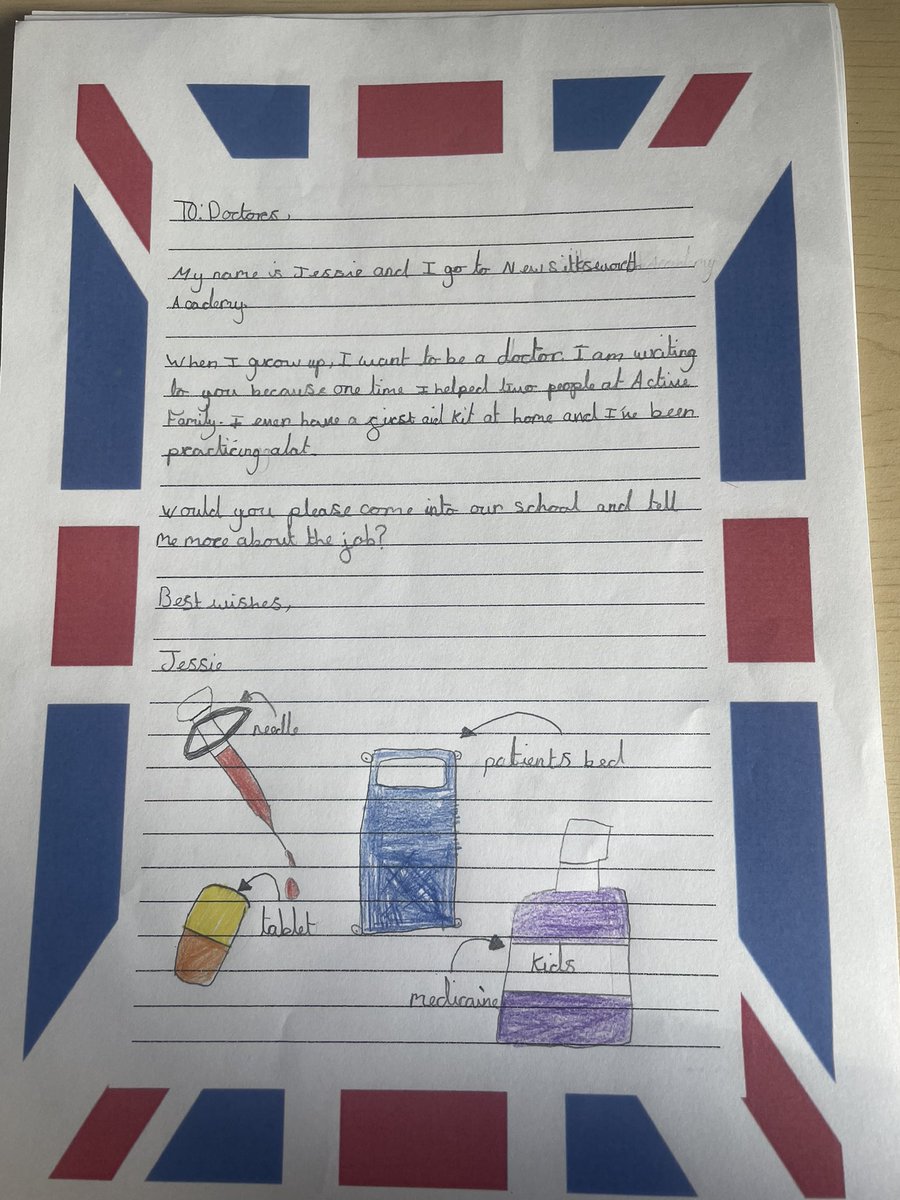 To: Doctores,
My name is Jessie and I go to New Silksworth Academy
Academy.
When I grow up, I want to be a doctor. I am writing
to you because one time I helped two people at Active
Family. I even have a first aid kit at home and I've been
practicing alot.
Would you please come into our school and tell
me more about the job?
Best wishes,
Jessie
needle
patients bed
tablet
kids
medicaine